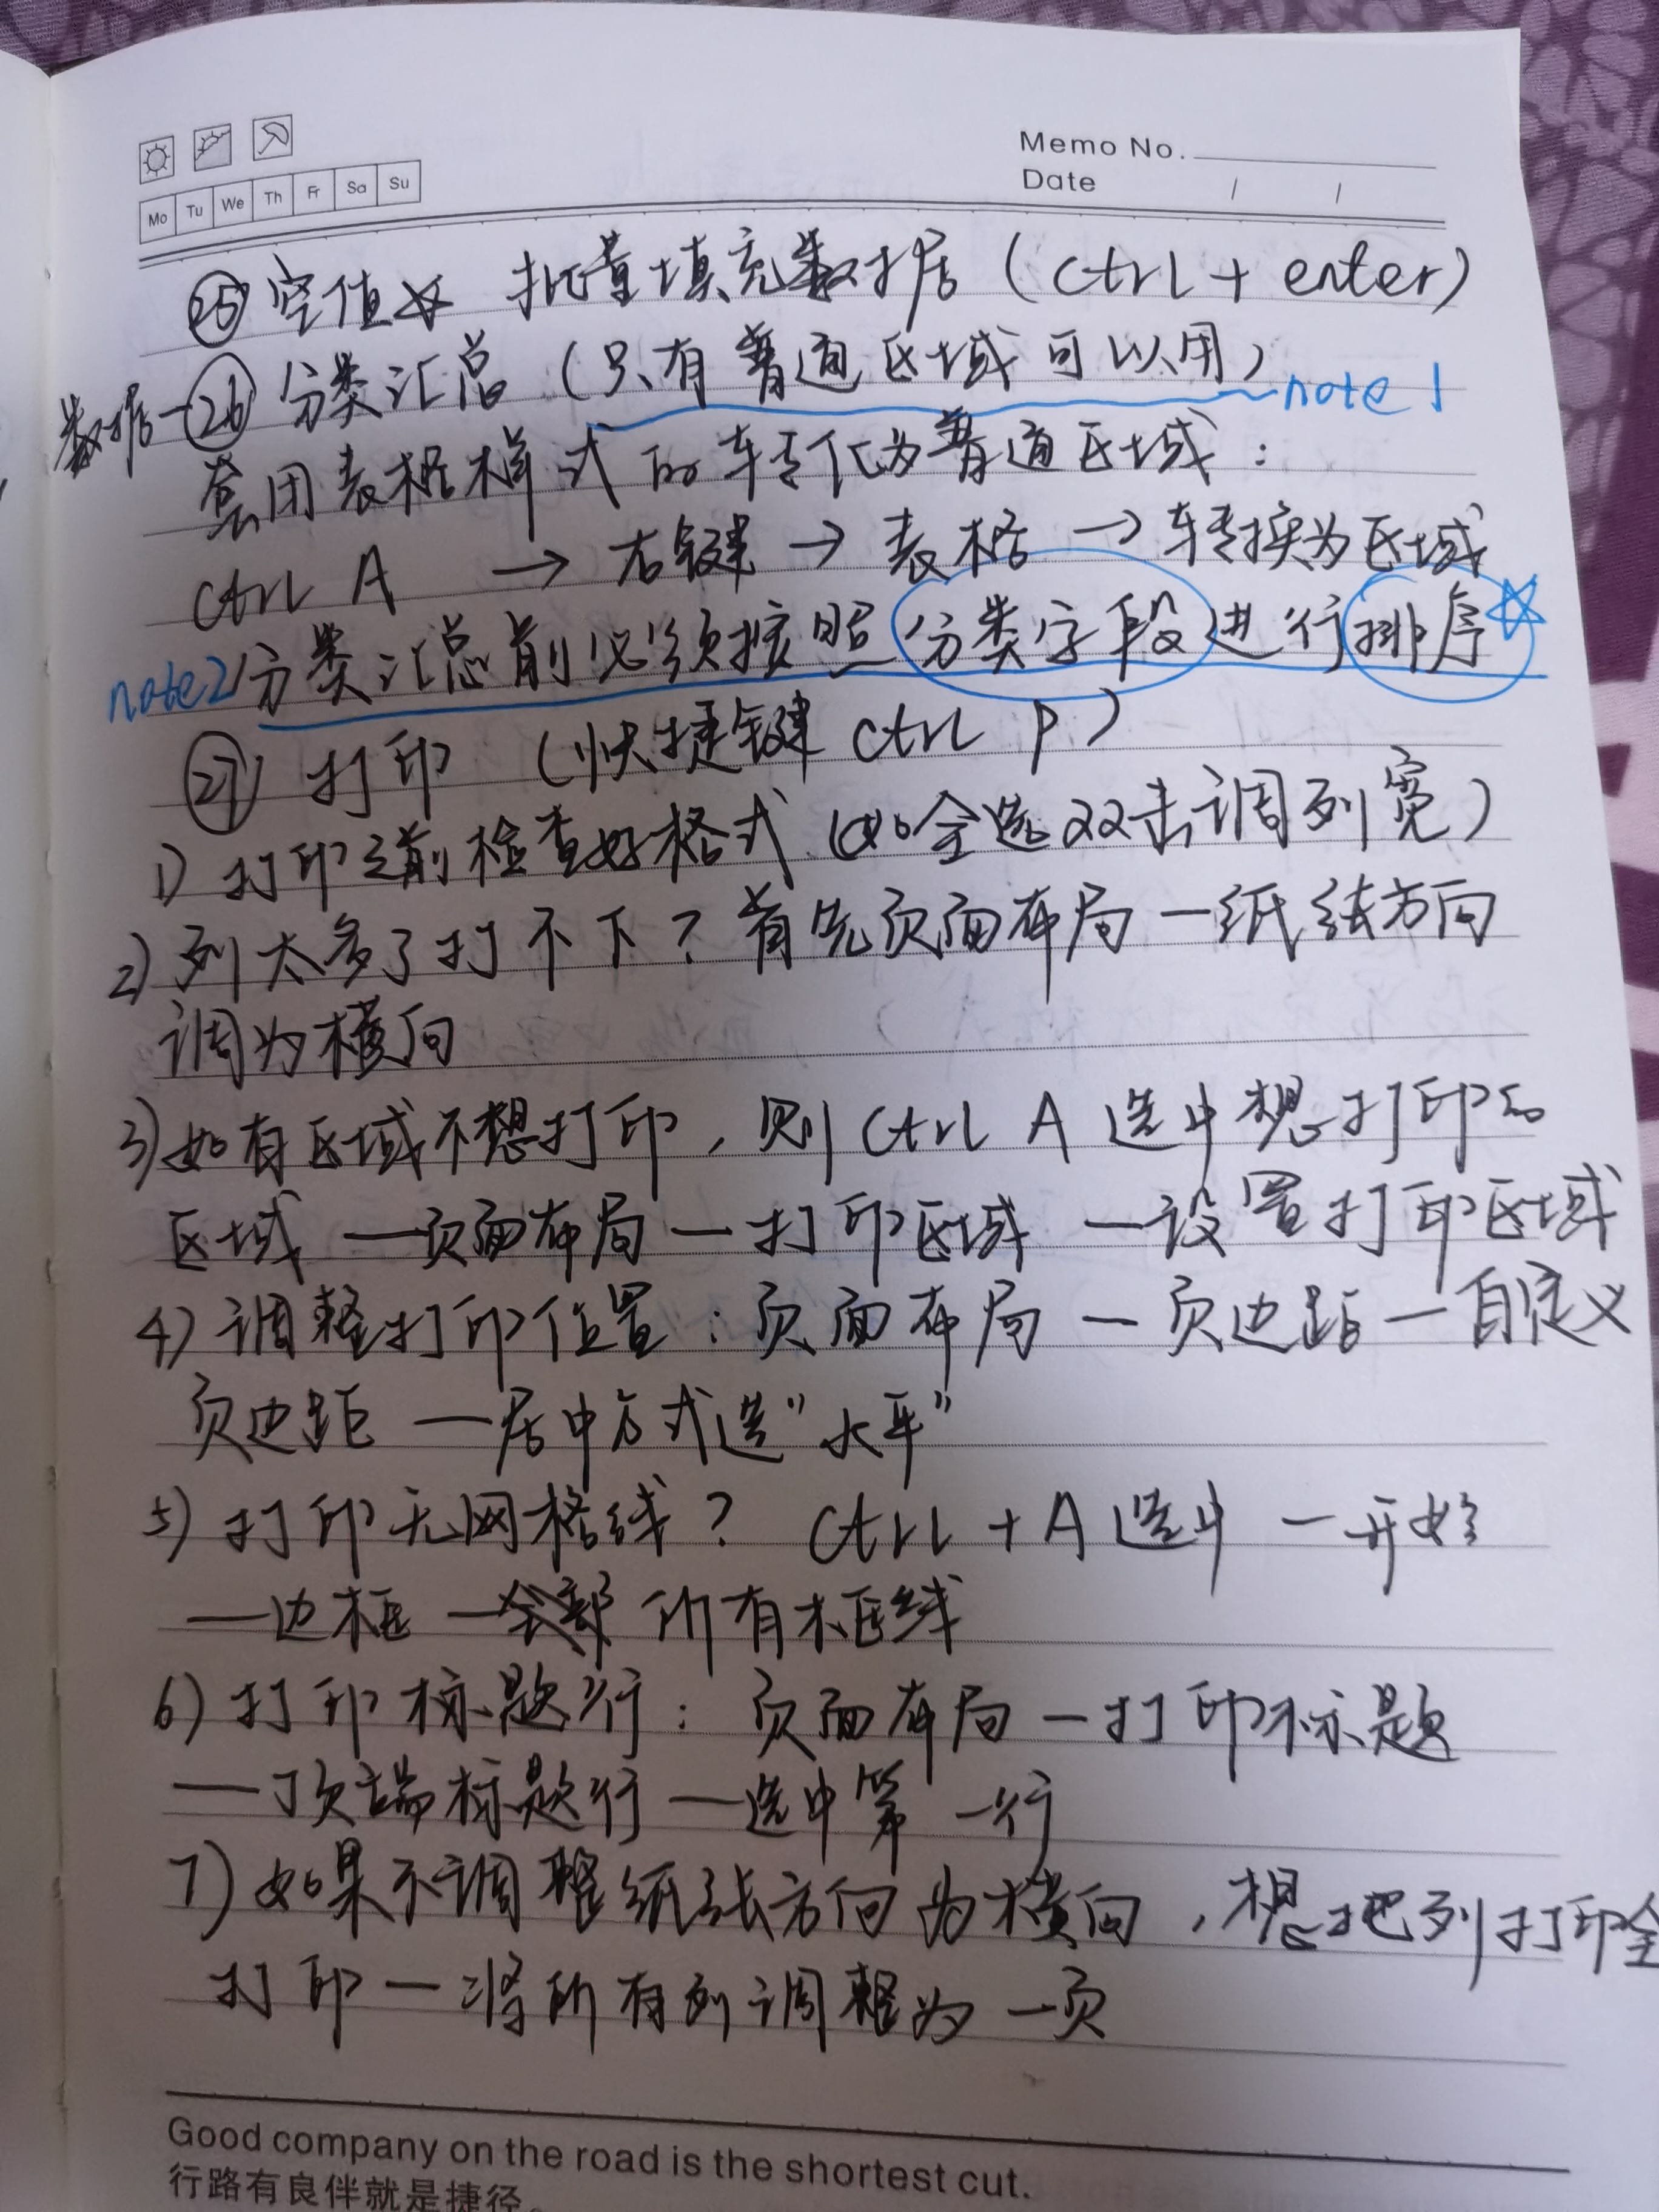 Memo No.
Date / /
Mo Tu We Th Fr Sa Su
㉕ 空值 批量填充数据 (Ctrl + enter)
数据-㉖ 分类汇总 (只有普通区域可以用) note 1
套用表格样式的转化为普通区域:
Ctrl A → 右键 → 表格 → 转换为区域
note2 分类汇总前必须按照分类字段进行排序☆
㉗ 打印 (快捷键 Ctrl P)
1) 打印之前检查好格式 (如全选双击调列宽)
2) 列太多了打不下? 首先页面布局—纸张方向
调为横向
3) 如有区域不想打印, 则 Ctrl A 选中想打印的
区域 —页面布局 —打印区域 —设置打印区域
4) 调整打印位置: 页面布局 — 页边距 — 自定义
页边距 —居中方式选"水平"
5) 打印无网格线? Ctrl + A 选中 — 开始
—边框 — 所有框线
6) 打印标题行: 页面布局 —打印标题
—顶端标题行 —选中第一行
7) 如果不调整纸张方向为横向, 想把列打印全
打印 — 将所有列调整为一页
Good company on the road is the shortest cut.
行路有良伴就是捷径。